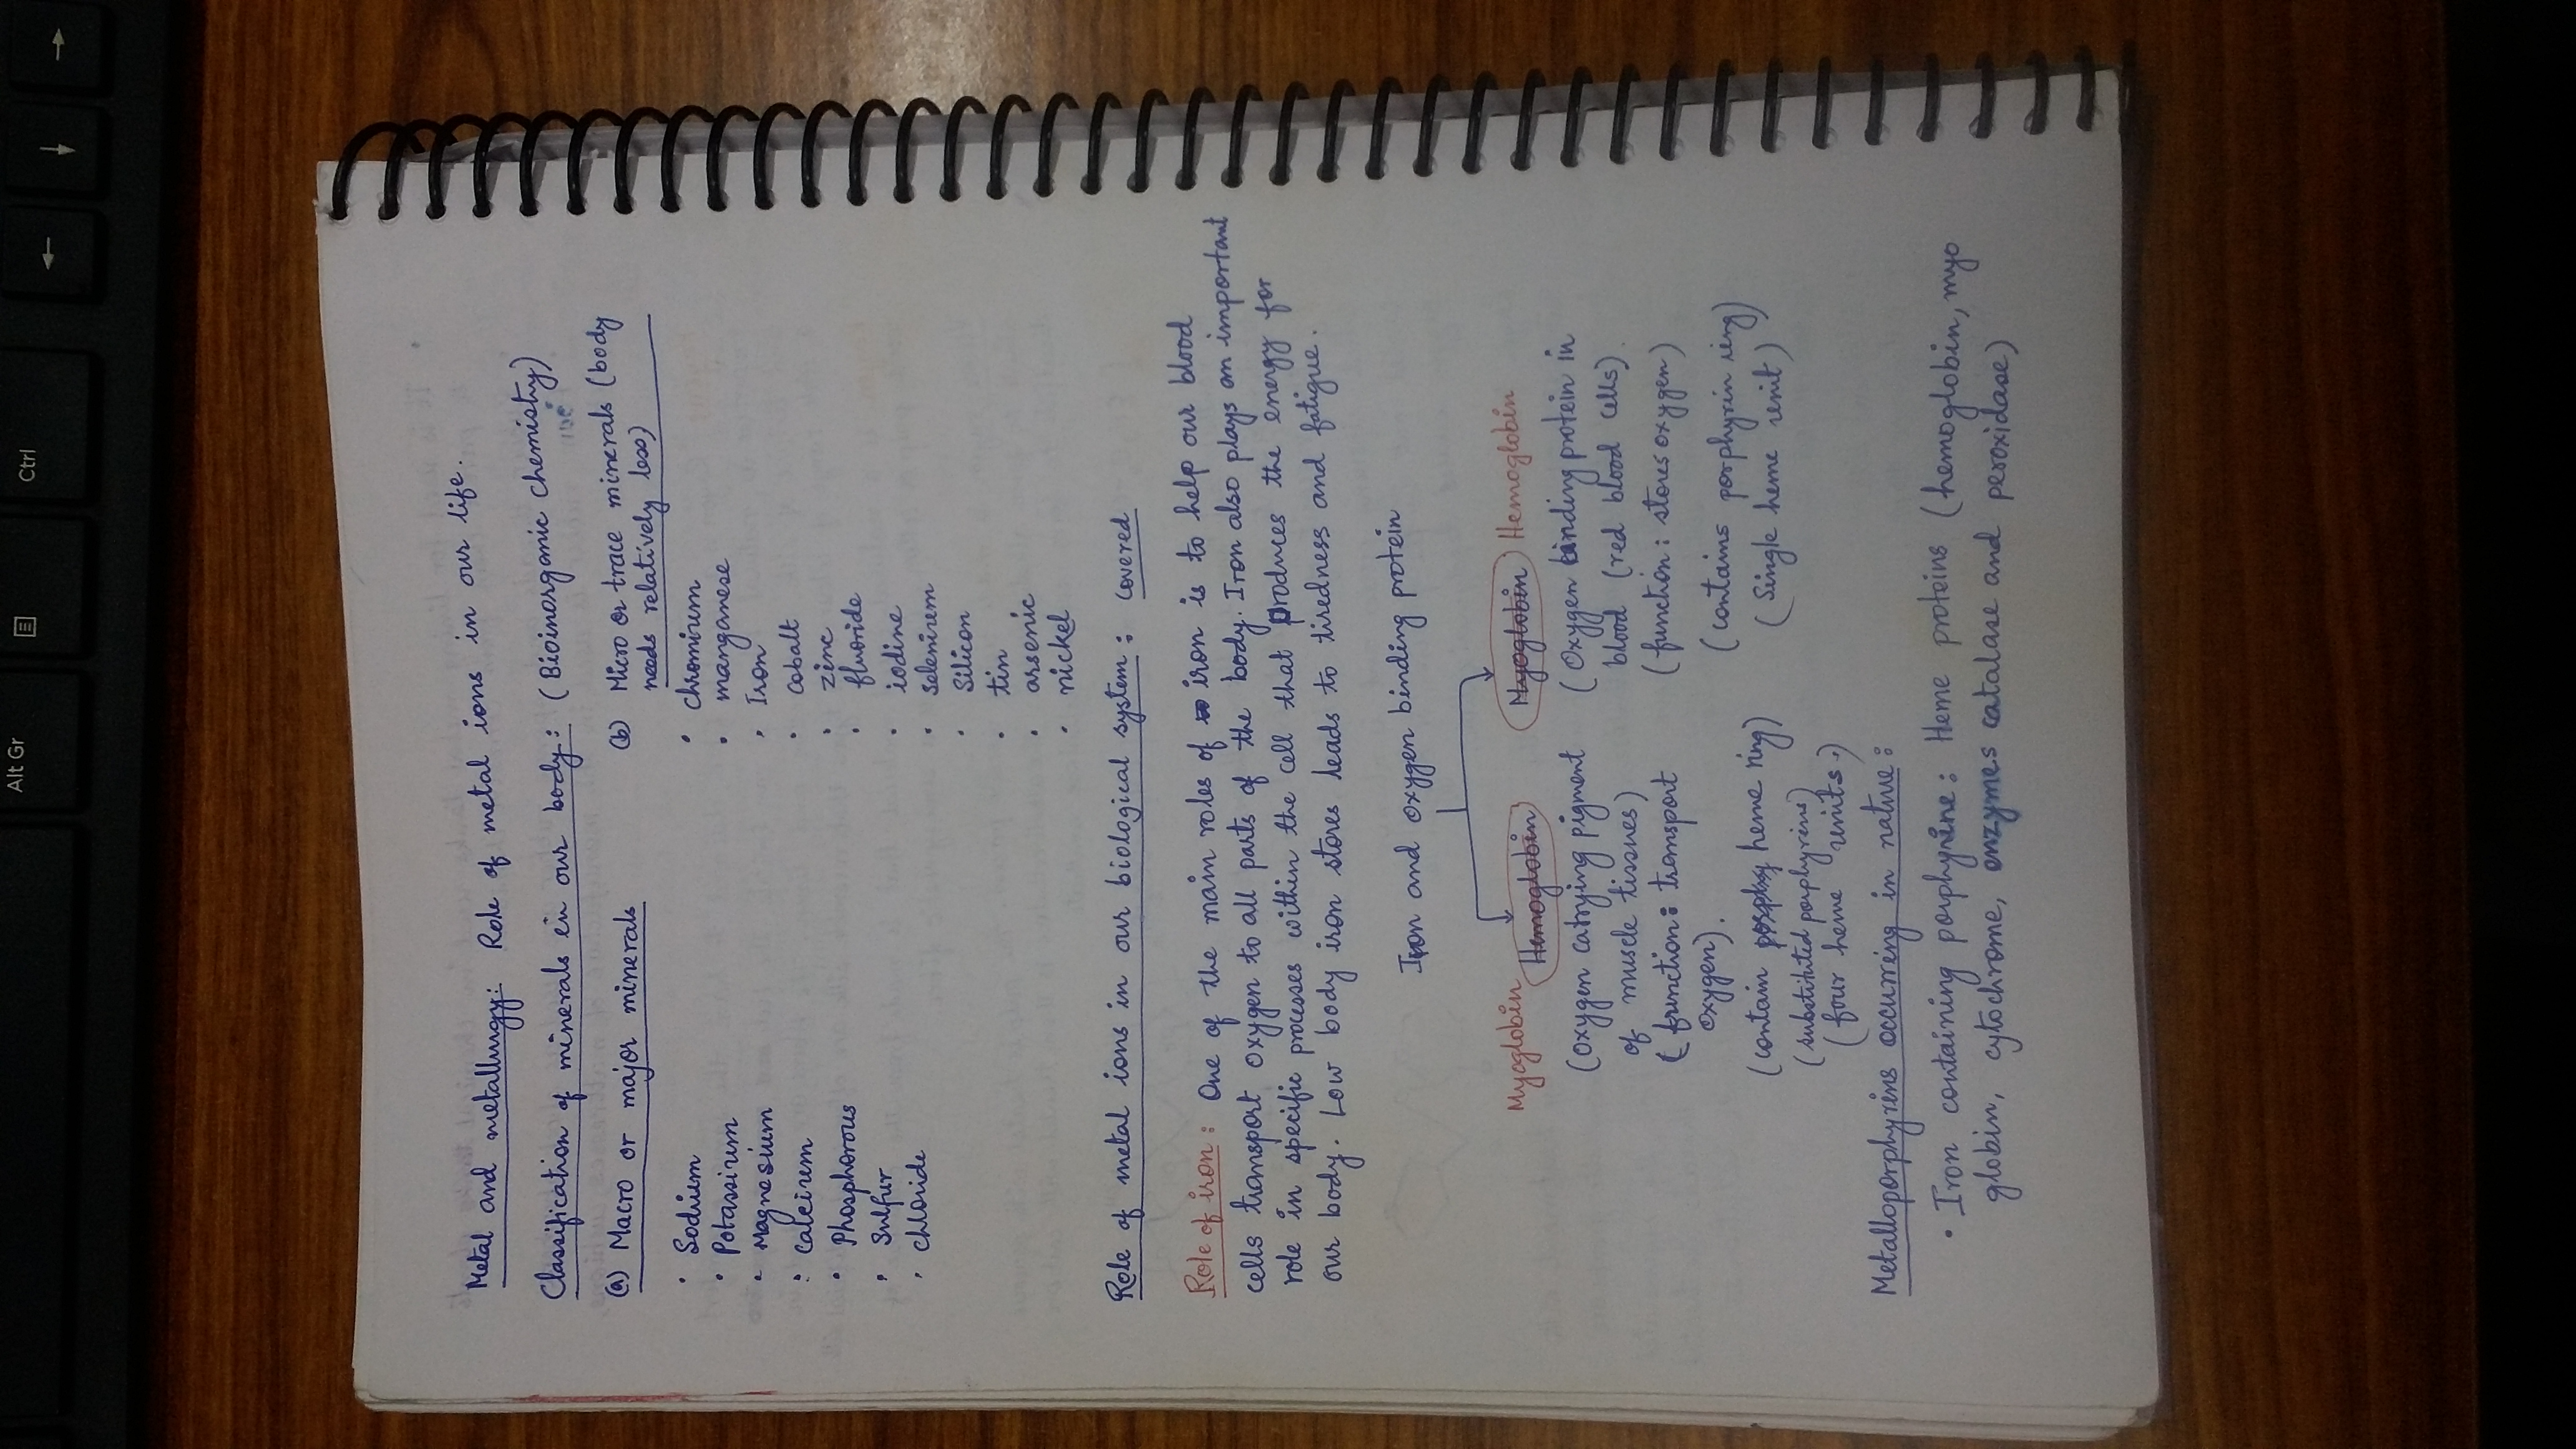 Alt Gr
Ctrl
Metal and metallurgy: Role of metal ions in our life.
Classification of minerals in our body: (Bioinorganic chemistry)
(a) Macro or major minerals
• Sodium
• Potassium
• Magnesium
• calcium
• Phosphorous
• Sulfur
• chloride
(b) Micro or trace minerals (body
needs relatively less)
• chromium
• manganese
• Iron
• cobalt
• zinc
• fluoride
• iodine
• selenium
• Silicon
• tin
• arsenic
• nickel
Role of metal ions in our biological system: covered
Role of iron: One of the main roles of iron is to help our blood
cells transport oxygen to all parts of the body. Iron also plays an important
role in specific processes within the cell that produces the energy for
our body. Low body iron stores leads to tiredness and fatigue.
Iron and oxygen binding protein
Myoglobin Hemoglobin
(oxygen carrying pigment
of muscle tissues)
(function: transport
oxygen).
(contain heme ring)
(substituted porphyrins)
(four heme units.)
Myoglobin Hemoglobin
(Oxygen binding protein in
blood (red blood cells)
(function: stores oxygen)
(contains porphyrin ring)
(Single heme unit)
Metalloporphyrins occurring in nature:
• Iron containing porphyrine: Heme proteins (hemoglobin, myo
globin, cytochrome, enzymes catalase and peroxidase)